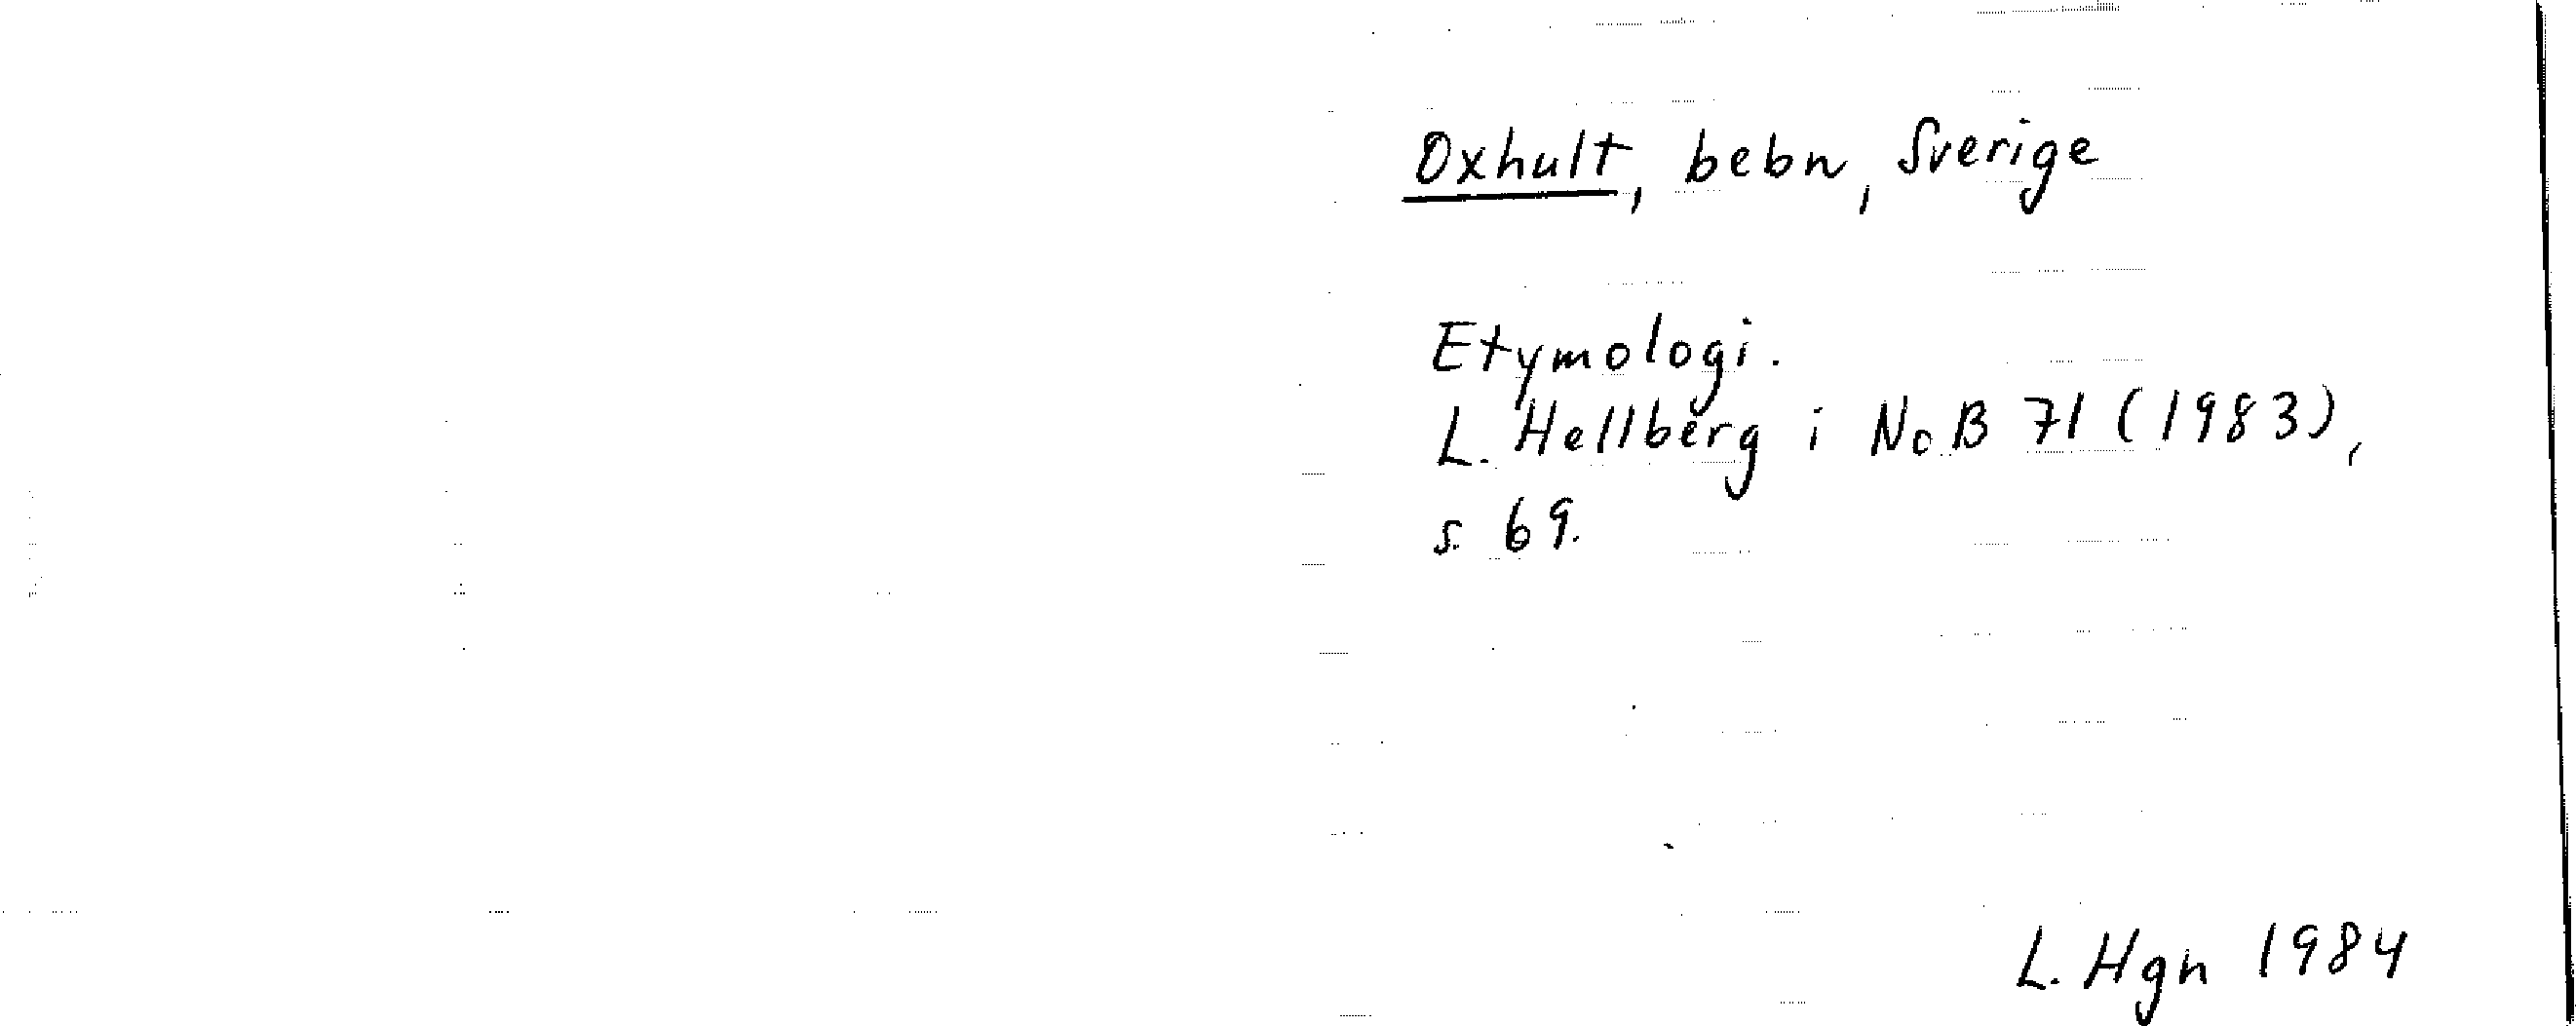 Oxhult, bebn, Sverige
Etymologi.
L. Hellberg i NoB 71 (1983),
s. 69.
L. Hgn 1984